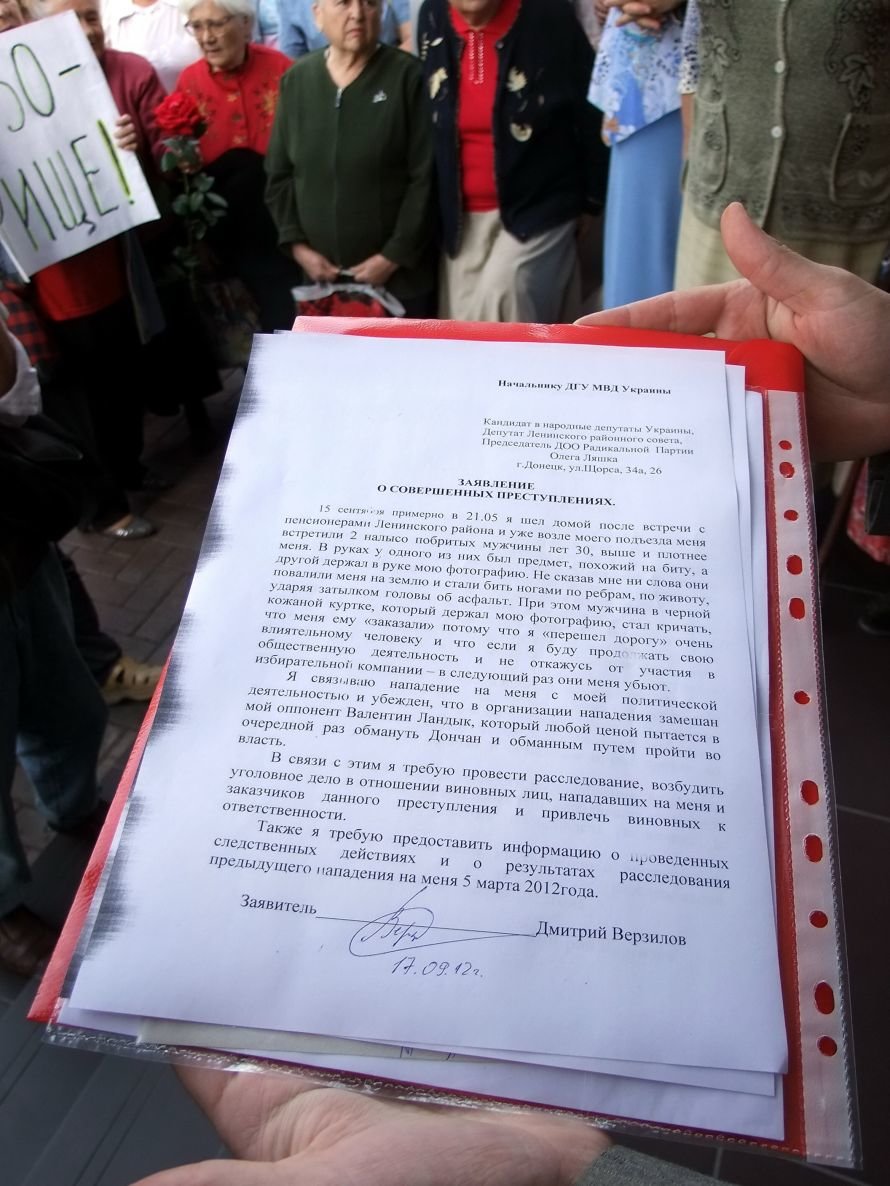 БО-
РИЩЕ!
Начальнику ДГУ МВД Украины
Кандидат в народные депутаты Украины,
Депутат Ленинского районного совета,
Председатель ДОО Радикальной Партии
Олега Ляшка
г.Донецк, ул.Щорса, 34а, 26
ЗАЯВЛЕНИЕ
О СОВЕРШЕННЫХ ПРЕСТУПЛЕНИЯХ.
15 сентября примерно в 21.05 я шел домой после встречи с
пенсионерами Ленинского района и уже возле моего подъезда меня
встретили 2 налысо побритых мужчины лет 30, выше и плотнее
меня. В руках у одного из них был предмет, похожий на биту, а
другой держал в руке мою фотографию. Не сказав мне ни слова они
повалили меня на землю и стали бить ногами по ребрам, по животу,
ударяя затылком головы об асфальт. При этом мужчина в черной
кожаной куртке, который держал мою фотографию, стал кричать,
что меня ему «заказали» потому что я «перешел дорогу» очень
влиятельному человеку и что если я буду продолжать свою
общественную деятельность и не откажусь от участия в
избирательной компании – в следующий раз они меня убьют.
Я связываю нападение на меня с моей политической
деятельностью и убежден, что в организации нападения замешан
мой оппонент Валентин Ландык, который любой ценой пытается в
очередной раз обмануть Дончан и обманным путем пройти во
власть.
В связи с этим я требую провести расследование, возбудить
уголовное дело в отношении виновных лиц, нападавших на меня и
заказчиков данного преступления и привлечь виновных к
ответственности.
Также я требую предоставить информацию о проведенных
следственных действиях и о результатах расследования
предыдущего нападения на меня 5 марта 2012года.
Заявитель Дмитрий Верзилов
17.09.12г.